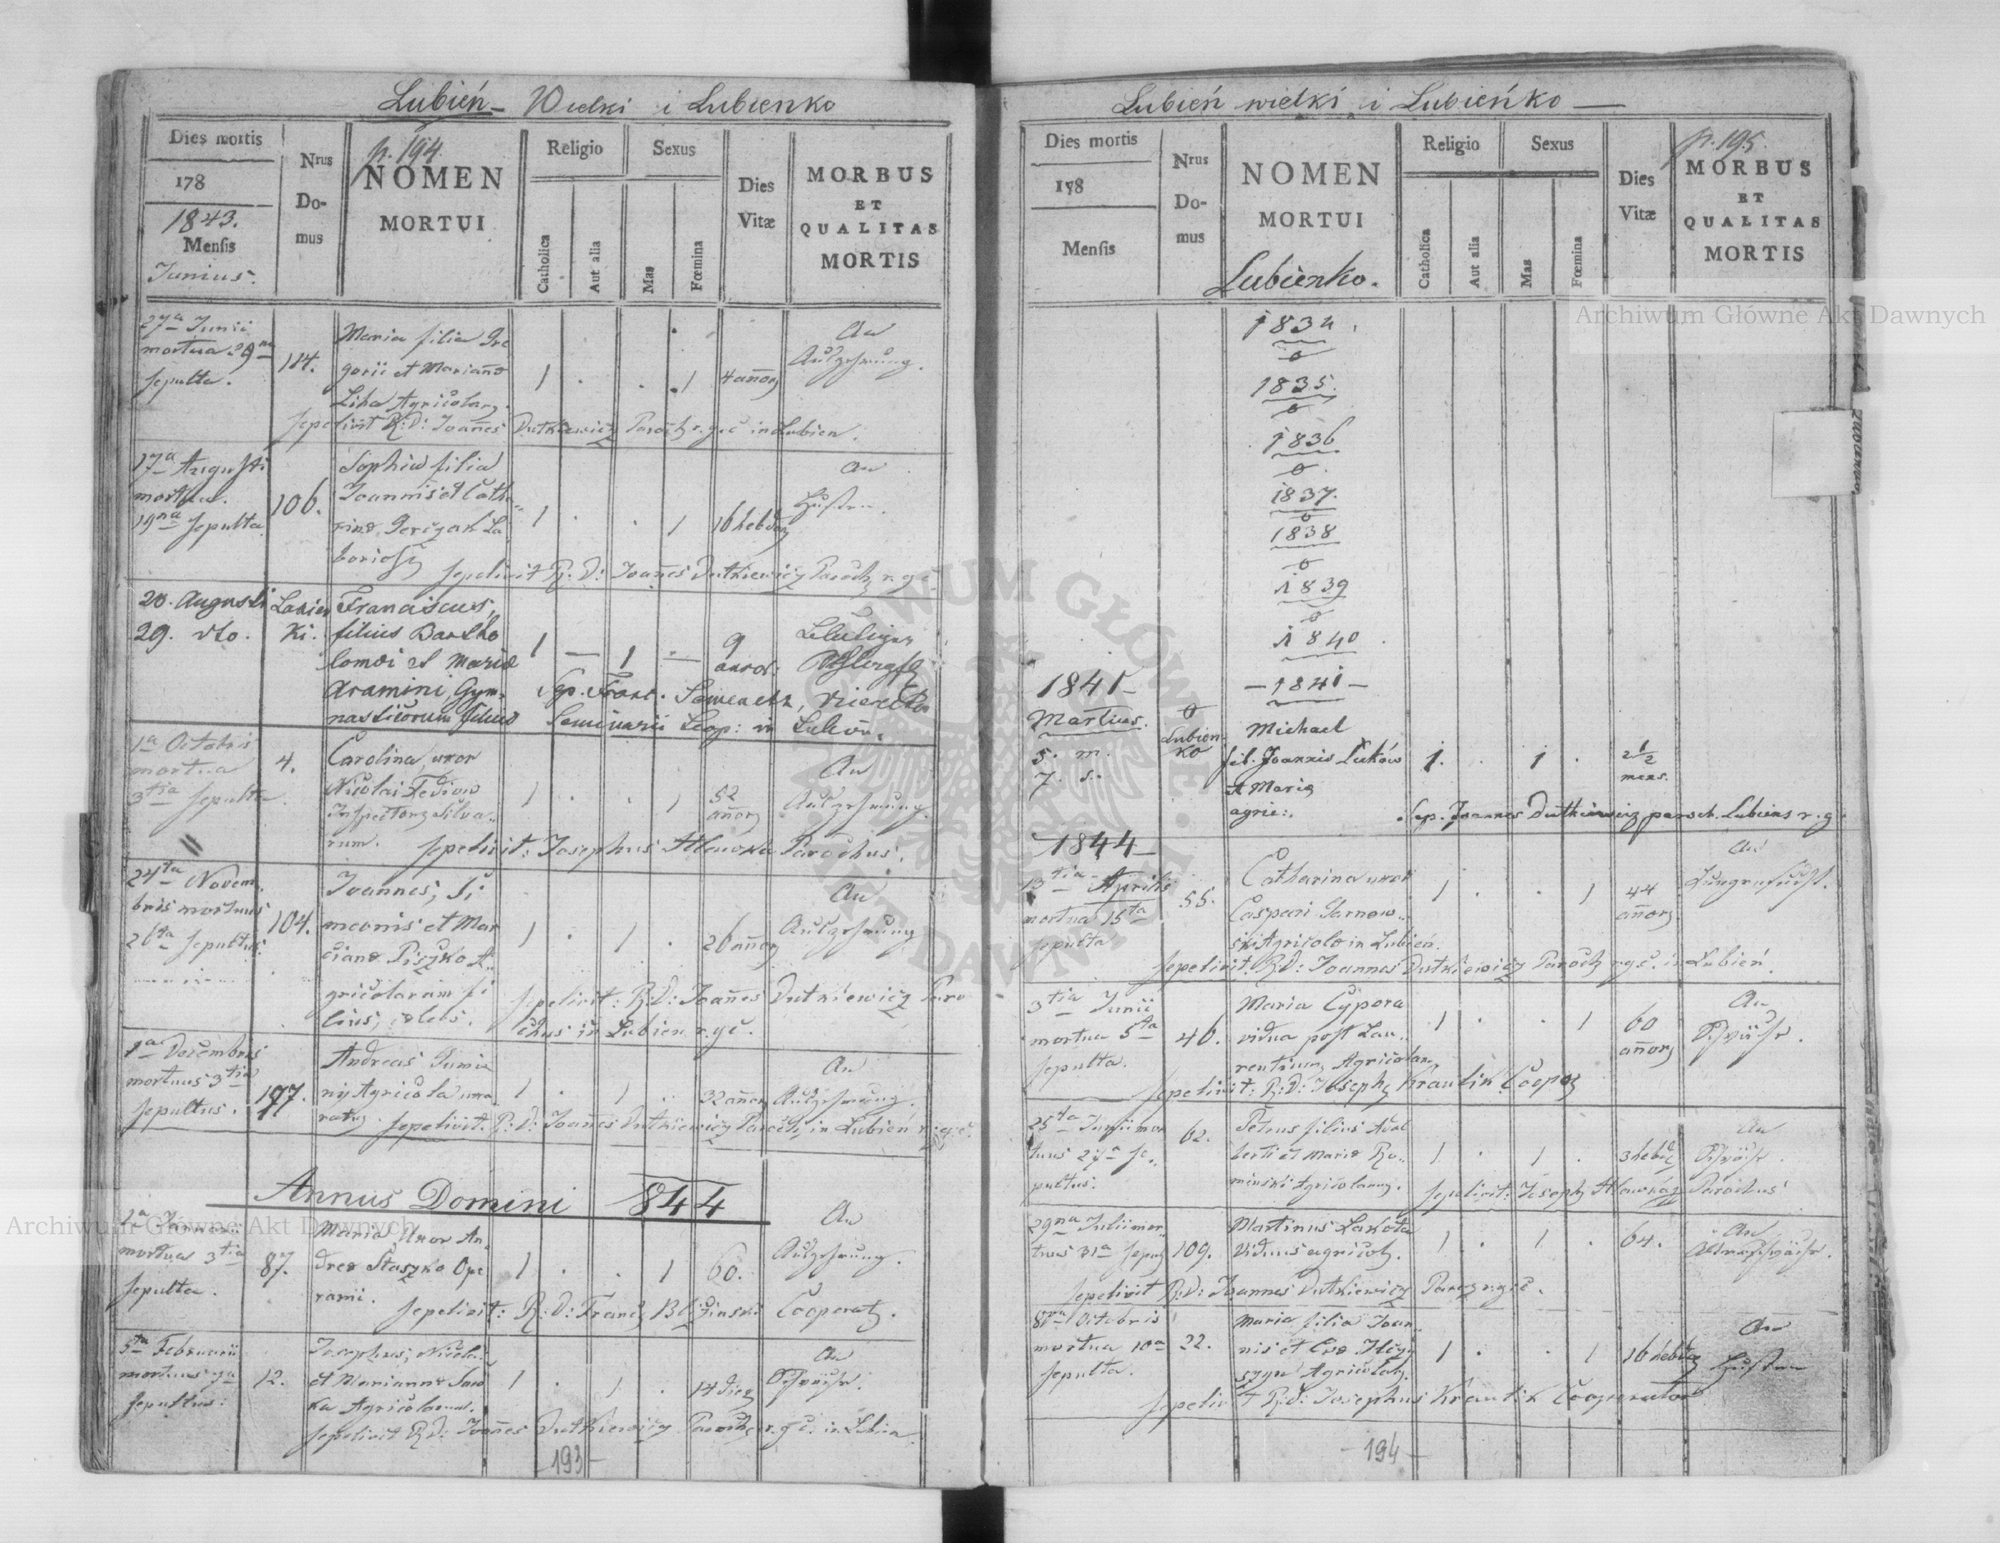 Lubień - Wielki i Lubienko
Dies mortis
178
1843.
Mensis
Junius.
Nrus
Do-
mus
p. 194.
NOMEN
MORTUI
Religio
Catholica
Aut alia
Sexus
Mas
Fœmina
Dies
Vitæ
MORBUS
ET
QUALITAS
MORTIS
27a Junii
mortua 29na
sepulta.
114.
Maria filia Gre
gorii et Marianæ
Liha Agricolarz.
1 . . 1
4 añorz
An
Auszehrung.
sepelivit R: D: Joañes Dutkiewicz Paroch r. g. c in Lubien.
17a Augusti
mortua.
19na sepulta
106.
Sophia filia
Joannis et Catha
rinæ Perczak La
boriosz
1 . . 1
16 hebdz
An
Husten.
sepelivit R: D: Joañes Dutkiewicz Paroch r. g. c.
28. Augusti
29. dto.
Lazien
ki.
Franciscus,
filius Bartho
lomæi et Mariæ
Aramini, Gym-
nasticorum filius
1 — 1 —
9
annor.
Sep. Franc. Sawenetz, Vicerector
Seminarii Leop: in Lubień.
1a Octobris
mortua
3tia sepulta.
4.
Carolina uxor
Nicolai Fediow
Inspectorz Silva-
rum.
1 . . 1
52
añorz
An
Auszehrung.
sepelivit: Josephus Hlawka Parochus.
24ta Novem
bris mortuus
26ta sepultus:
104.
Joannes, Si
meonis et Mar
cianæ Piszko A-
gricolarum fi
lius, cælebs.
1 . 1 .
26 añorz
An
Auszehrung
sepelivit: R: D: Joañes Dutkiewicz Paro
chus in Lubien r. g. c.
1a Decembris
mortuus 3tia
sepultus.
197.
Andreas Humin
ny Agricola uxo
ratus.
1 . 1 .
32 añorz
An
Auszehrung.
sepelivit. R: D: Joañes Dutkiewicz Paroch, in Lubień r. g. c.
Annus Domini 844
1a Januarii
mortua 3tia
sepulta.
87.
Maria Uxor An-
dreæ Staszko Ope
rarii.
1 . . 1
60.
An
Auszehrung.
sepelivit: R: D: Franc Blizinski Cooperatz.
5ta Februarii
mortuus 7a
sepultus:
12.
Josephus, Nicola
et Mariannæ Saw
ka Agricolarum.
1 . 1 .
14 diez
An
Schwäche.
sepelivit R: D: Joañes Dutkiewicz Parochz r. g. c. in Lubien.
193
Lubień wielki i Lubieńko —
Dies mortis
178
Mensis
Nrus
Do-
mus
NOMEN
MORTUI
Lubienko.
Religio
Catholica
Aut alia
Sexus
Mas
Fœmina
Dies
Vitæ
p. 195.
MORBUS
ET
QUALITAS
MORTIS
1834.
0
1835.
0
1836
0.
1837.
0
1838
0
1839
0
1840
1841
— 1841 —
Martius.
5. m.
7. s.
0
Lubien-
ko
Michael
fil. Joannis Luków
et Maria
agric:.
1. . 1 .
2 1/2
mens.
Sep. Joannes Dutkiewicz paroch. Lubiens r. g.
1844
13tia Aprilis
mortua 15ta
sepulta
55.
Catharina uxor
Caspari Tarnow-
ski Agricolæ in Lubień.
1 . . 1
44
añorz
An
Lungensucht.
sepelivit. R: D: Joannes Dutkiewicz Paroch r. g. c. in Lubień.
3tia Junii
mortua 5ta
sepulta.
40.
Maria Cypora
vidua post Lau-
rentium Agricolam
1 . . 1
60
añorz
An
Schwäche.
sepelivit: R: D: Joseph Krautik Coopez
25ta Junii mor
tuus 27a se-
pultus.
62.
Petrus filius Adal
berti et Mariæ Ro-
minski Agricolarz.
1 . 1 .
3 hebdz
An
Schwäche.
sepelivit: Joseph Hlawka Parochus
29na Julii mor-
tuus 31a sepulz
109.
Martinus Lakota
viduus agricolz.
1 . 1 .
64.
An
Altersschwäche.
sepelivit R: D: Joannes Dutkiewicz Paroz r. g. c.
8va Octobris
mortua 10a
sepulta.
22.
Maria filia Joan-
nis et Evæ
Agricolarz.
1 . . 1
16 hebdz
An
Husten
sepelivit R: D: Josephus Krautik Cooperator
194
Archiwum Główne Akt Dawnych
Archiwum Główne Akt Dawnych
ARCHIWUM GŁÓWNE AKT DAWNYCH